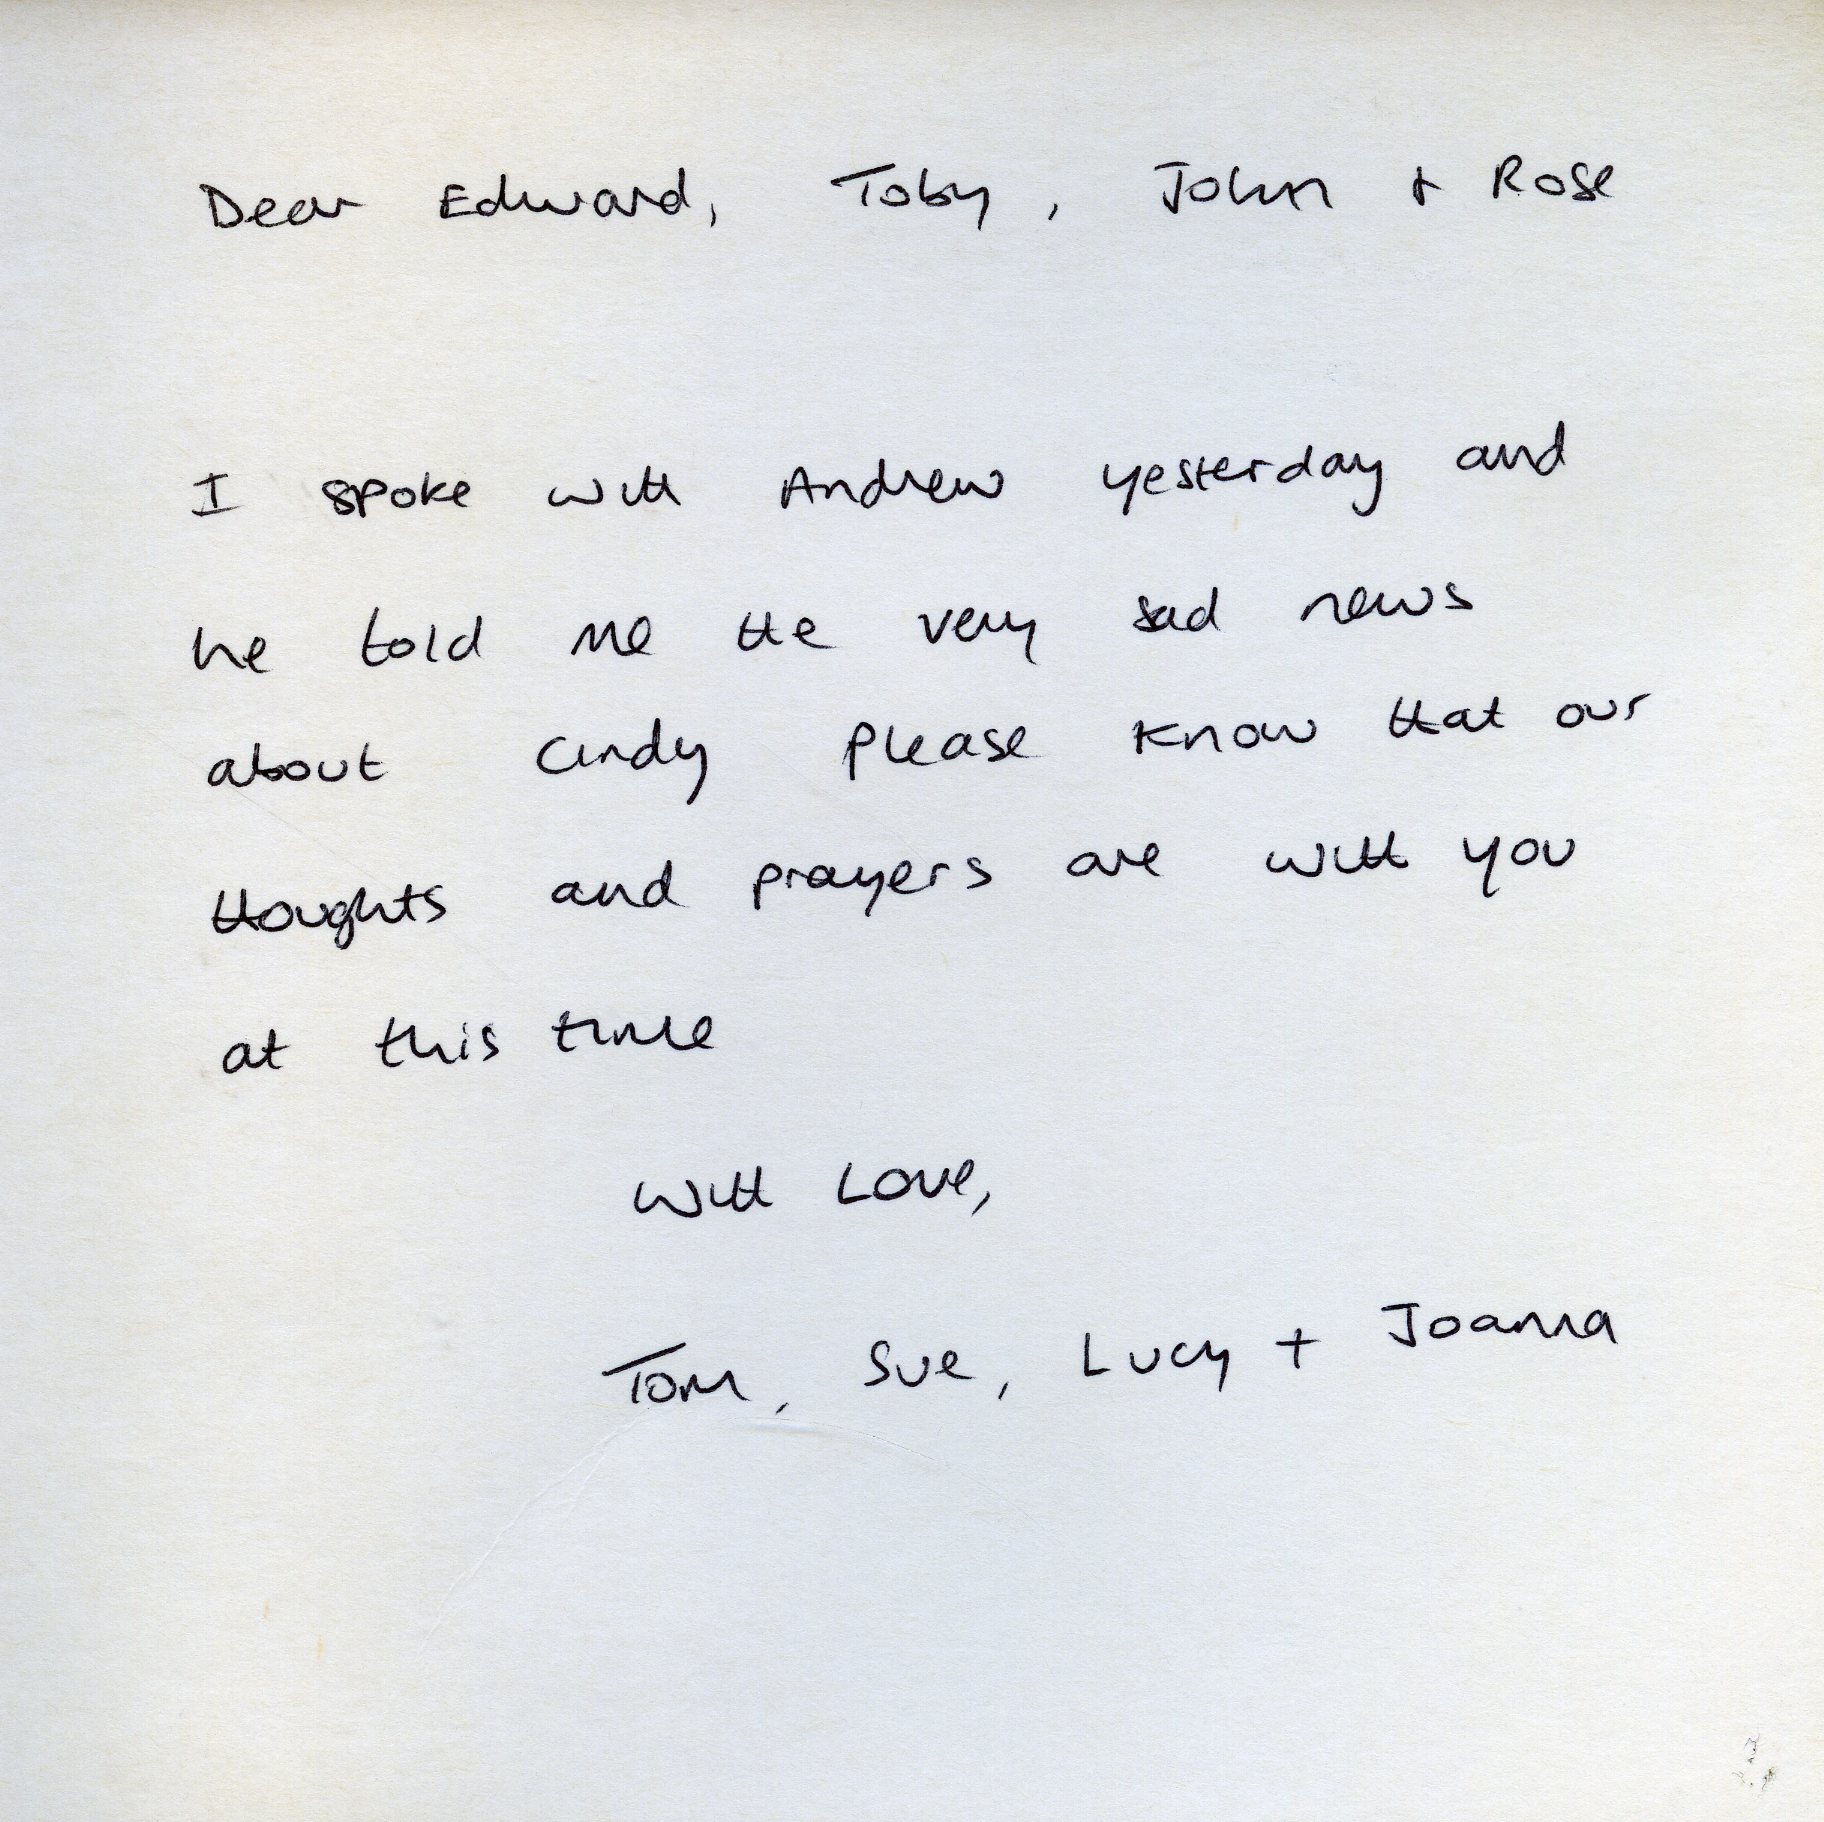 Dear Edward, Toby, John + Rose
I spoke with Andrew yesterday and
he told me the very sad news
about Cindy Please know that our
thoughts and prayers are with you
at this time
With Love,
Tom, Sue, Lucy + Joanna